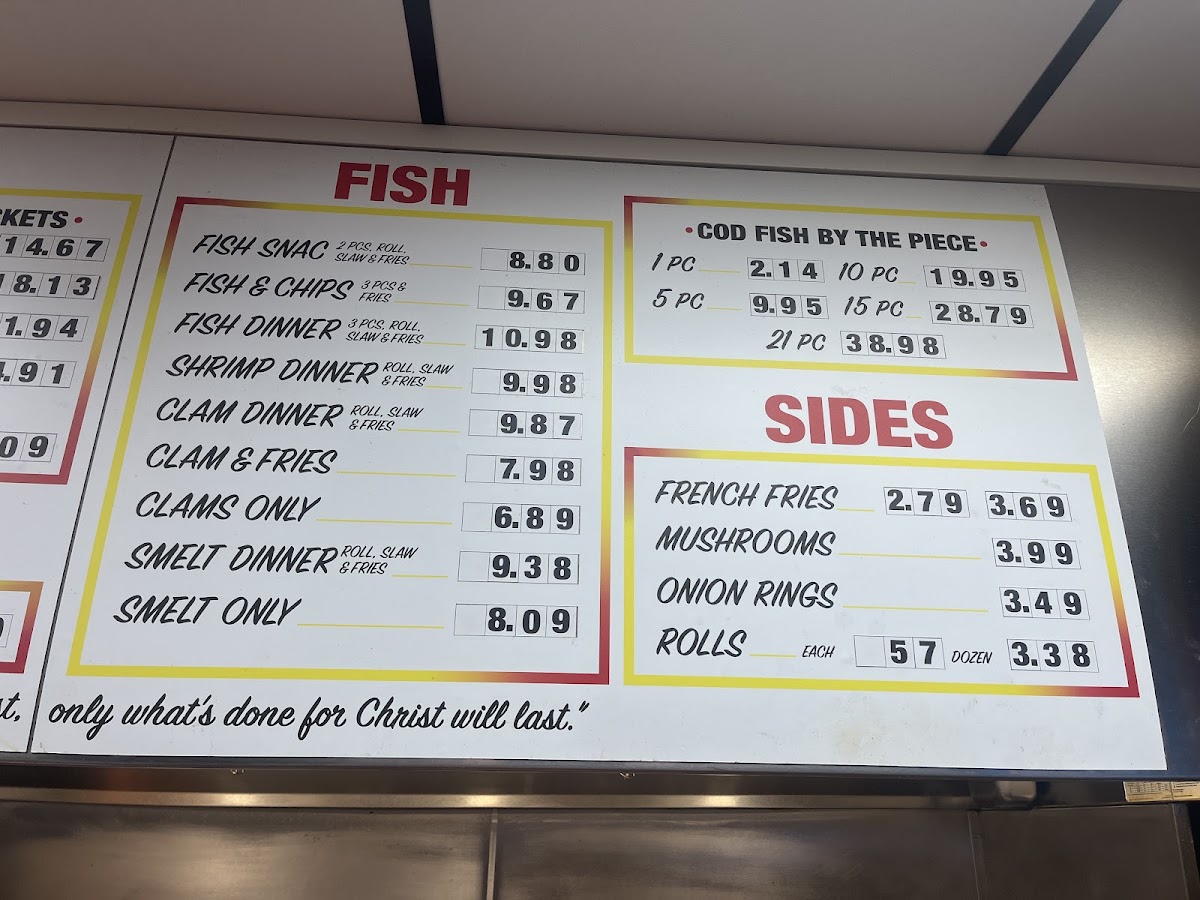 KETS •
14.67
18.13
1.94
.91
09
FISH
FISH SNAC 2 PCS, ROLL, SLAW & FRIES 8.80
FISH & CHIPS 3 PCS & FRIES 9.67
FISH DINNER 3 PCS, ROLL, SLAW & FRIES 10.98
SHRIMP DINNER ROLL, SLAW & FRIES 9.98
CLAM DINNER ROLL, SLAW & FRIES 9.87
CLAM & FRIES 7.98
CLAMS ONLY 6.89
SMELT DINNER ROLL, SLAW & FRIES 9.38
SMELT ONLY 8.09
• COD FISH BY THE PIECE •
1 PC 2.14 10 PC 19.95
5 PC 9.95 15 PC 28.79
21 PC 38.98
SIDES
FRENCH FRIES 2.79 3.69
MUSHROOMS 3.99
ONION RINGS 3.49
ROLLS EACH 57 DOZEN 3.38
only what's done for Christ will last."